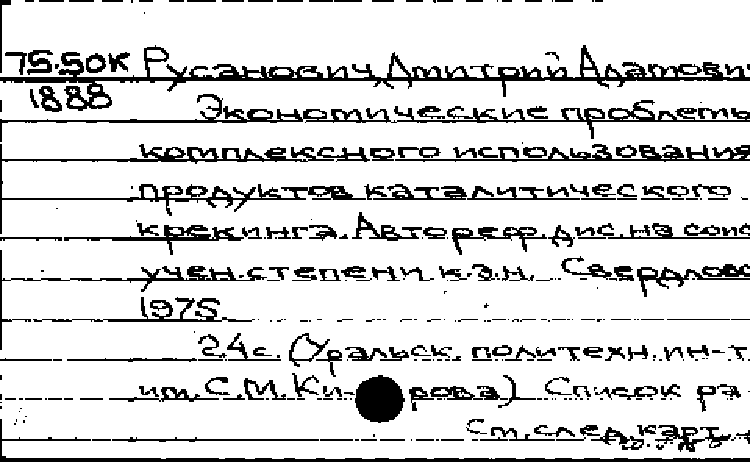 75.50К Русанович Дмитрий Адамович
1888
Экономические проблемы
комплексного использования
продуктов каталитического
крекинга. Автореф. дис. на соис
учен. степени к.э.н. Свердловс
1975
24с. (Уральск. политехн. ин-т
им. С.М. Ки- рова) Список ра
См. след. карт.